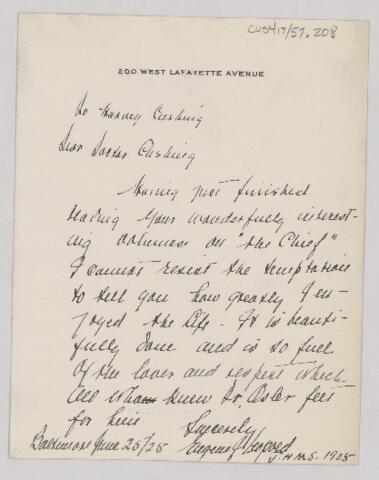 CUS417/57.208
200 WEST LAFAYETTE AVENUE
Dr Harvey Cushing
Dear Doctor Cushing
Having just finished
reading your wonderfully interest-
ing volumes on "the Chief"
I cannot resist the temptation
to tell you how greatly I en-
joyed the life. It is beauti-
fully done and is so full
of the love and respect which
all who knew Dr. Osler feel
for him
Sincerely
Baltimore June 25/25
Eugene J Leopold
J.H.M.S. 1905